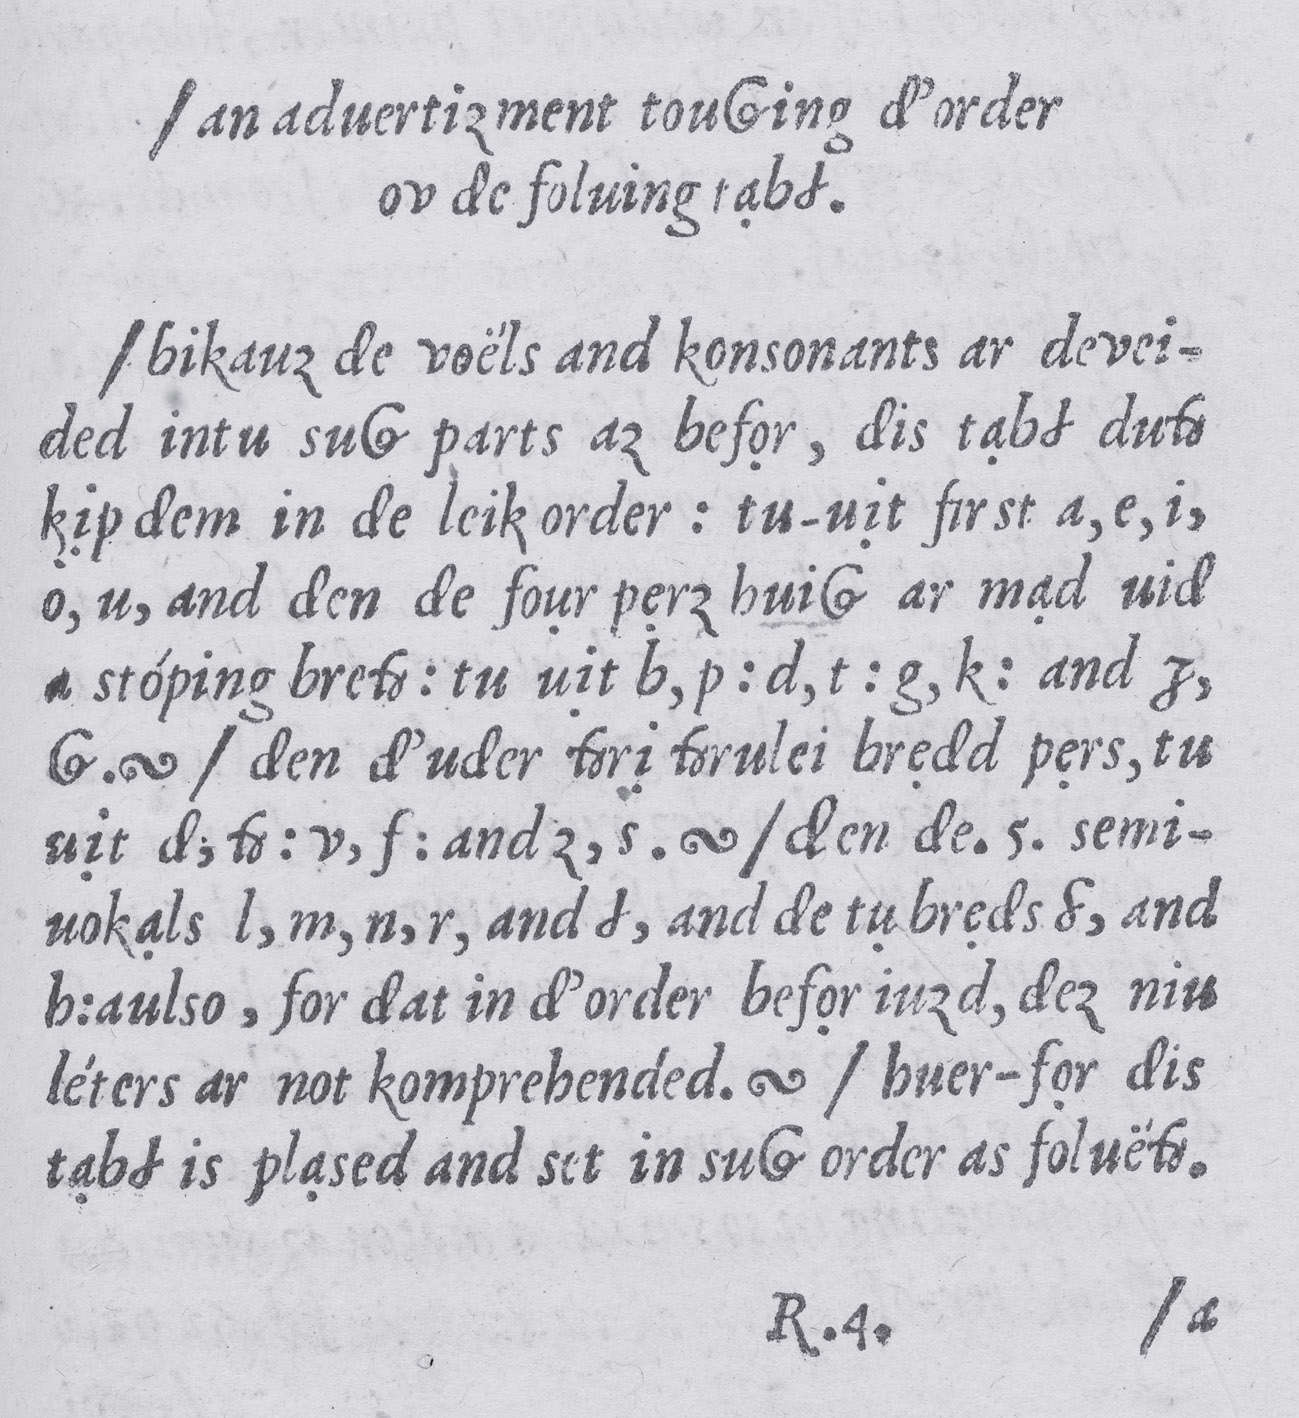 / an aduertiʒment touɕing ð'order
ov ðe foluing tạbɫ.
/ bikauʒ ðe voëls and konsonants ar devei-
ded intu suɕ parts aʒ befọr, ðis tạbɫ duþ
kị̣p ðem in ðe leik order : tu-uịt first a, e, i,
o, u, and ðen ðe foụr pẹrʒ huiɕ ar mạd uið
a stóping breþ : tu uịt b, p : d, t : g, k : and ʓ,
ɕ. ∾ / ðen ð'uðer þrị þrulei brẹðd pẹrs, tu
uịt ð, þ : v, f : and ʒ, s. ∾ / ðen ðe. 5. semi-
uokạls l, m, n, r, and ɫ, and ðe tụ brẹðs ȣ, and
h: aulso, for ðat in ð'order befọr iuʒd, ðeʒ niu
léters ar not komprehended. ∾ / huer-fọr ðis
tạbɫ is plạsed and set in suɕ order as foluëþ.
R. 4. / a